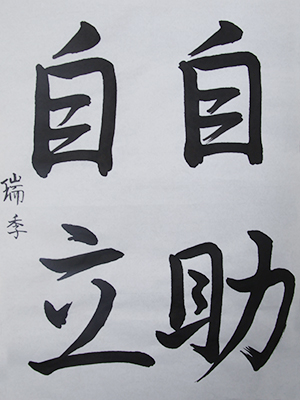 自助
自立
瑞季